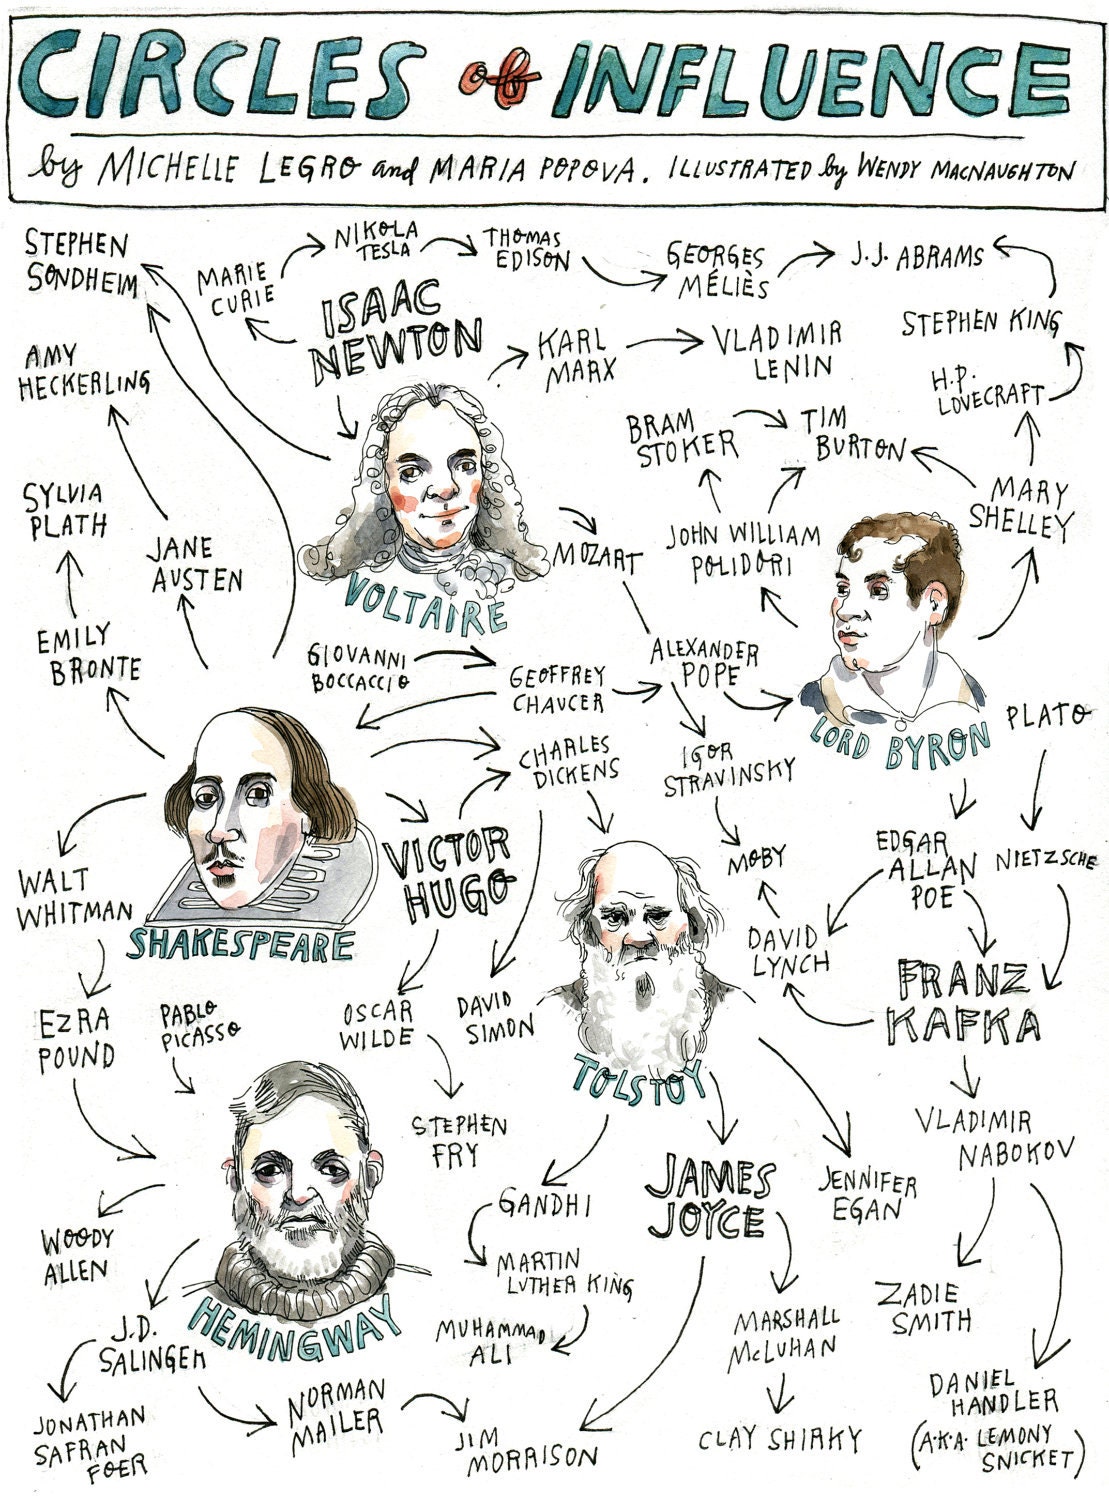 CIRCLES of INFLUENCE
by MICHELLE LEGRO and MARIA POPOVA. ILLUSTRATED by WENDY MACNAUGHTON
STEPHEN
SONDHEIM
MARIE
CURIE
NIKOLA
TESLA
THOMAS
EDISON
GEORGES
MÉLIÈS
J.J. ABRAMS
ISAAC
NEWTON
KARL
MARX
VLADIMIR
LENIN
STEPHEN KING
AMY
HECKERLING
H.P.
LOVECRAFT
BRAM
STOKER
TIM
BURTON
SYLVIA
PLATH
MARY
SHELLEY
JANE
AUSTEN
MOZART
JOHN WILLIAM
POLIDORI
VOLTAIRE
EMILY
BRONTE
GIOVANNI
BOCCACCIO
GEOFFREY
CHAUCER
ALEXANDER
POPE
LORD BYRON
PLATO
CHARLES
DICKENS
IGOR
STRAVINSKY
WALT
WHITMAN
SHAKESPEARE
VICTOR
HUGO
MOBY
EDGAR
ALLAN
POE
NIETZSCHE
DAVID
LYNCH
FRANZ
KAFKA
EZRA
POUND
PABLO
PICASSO
OSCAR
WILDE
DAVID
SIMON
TOLSTOY
STEPHEN
FRY
VLADIMIR
NABOKOV
GANDHI
JAMES
JOYCE
JENNIFER
EGAN
WOODY
ALLEN
MARTIN
LUTHER KING
ZADIE
SMITH
HEMINGWAY
J.D.
SALINGER
MUHAMMAD
ALI
MARSHALL
McLUHAN
JONATHAN
SAFRAN
FOER
NORMAN
MAILER
JIM
MORRISON
CLAY SHIRKY
DANIEL
HANDLER
(A.K.A. LEMONY
SNICKET)